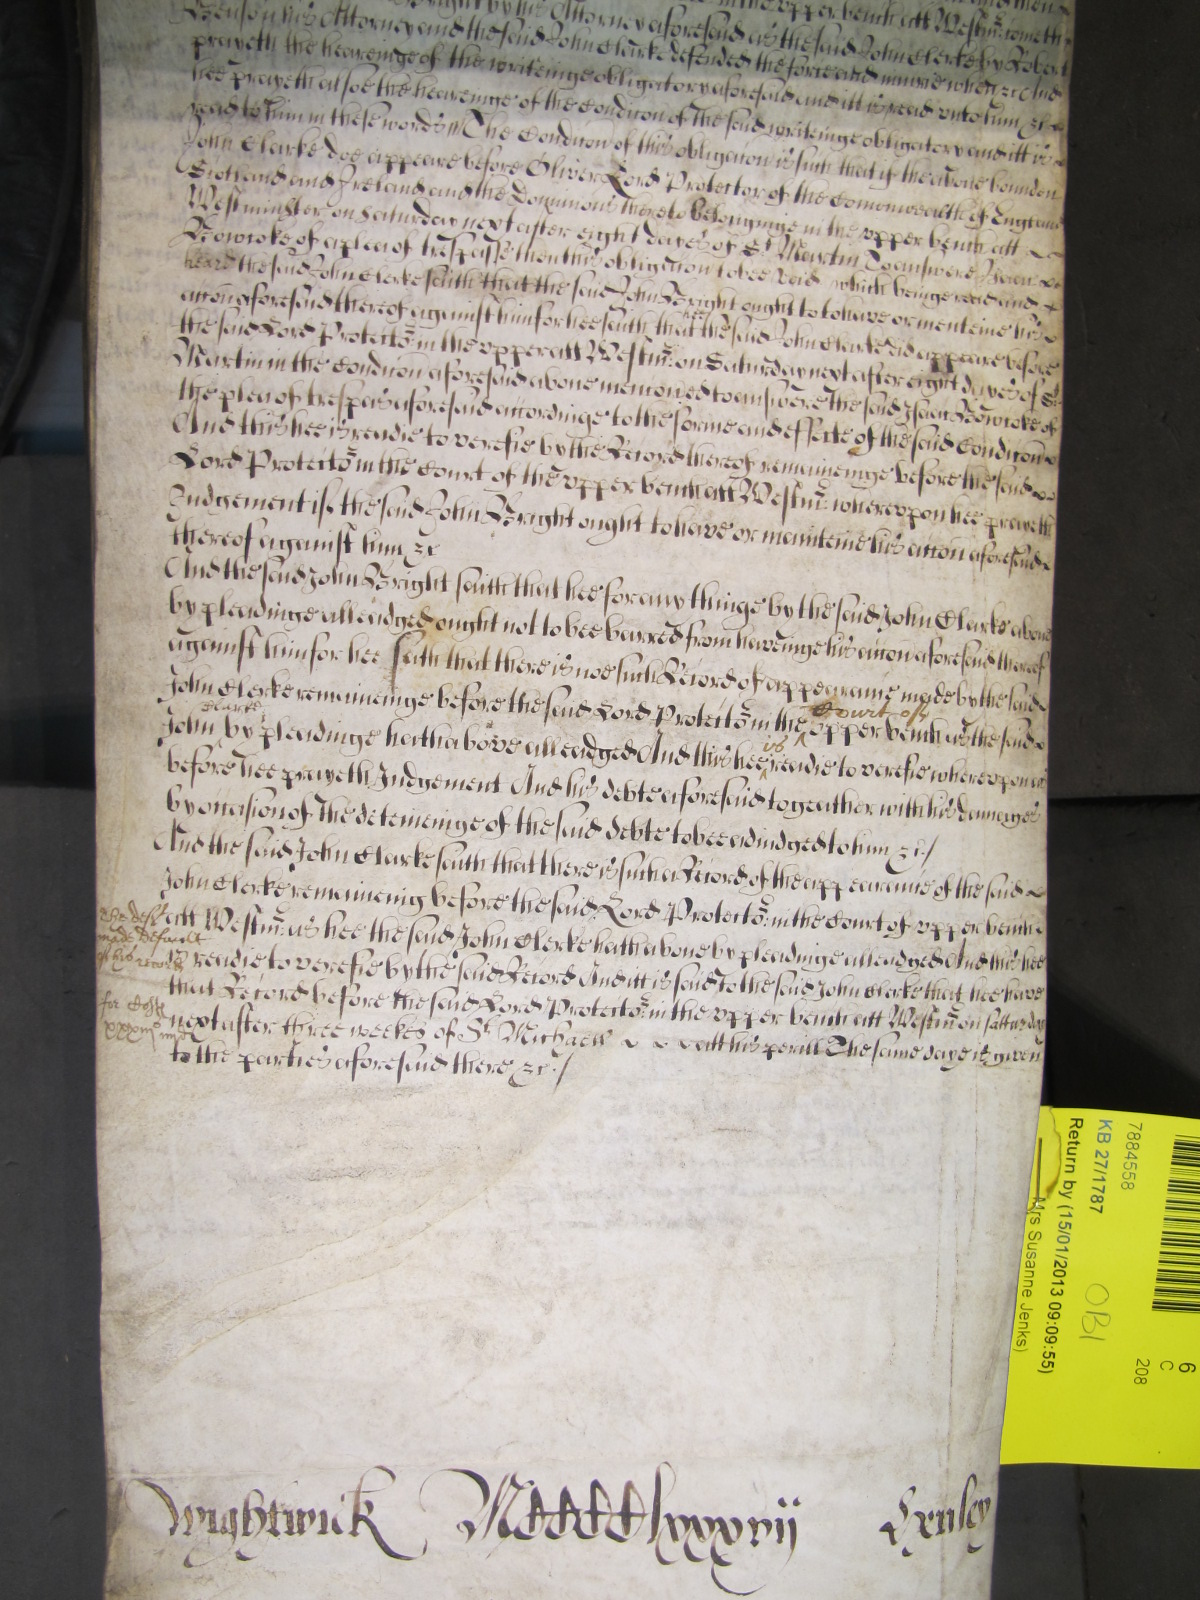 Benson his Attorney and the said John Clerke by Robert
prayeth the heareinge of the writeinge obligatory aforesaid and itt is read unto him &c
hee prayeth alsoe the heareinge of the Condicon of the said writeinge obligatory and itt is
read to him in these words The Condicon of this obligacon is such that if the above bounden
John Clarke doe appeare before Oliver Lord Protector of the Comonwealth of England
Scotland and Ireland and the Dominions thereto belonginge in the upper bench att
Westminster on Saturday next after eight dayes of St Martin to answere Isaac
of a plea of trespasse then this obligacon to bee void which beinge read and
heard the said John Clerke saith that the said John Bright ought to have or menteine his
accon aforesaid thereof against him for hee saith that hee the said John Clerke did appeare before
the said Lord Protector in the upper att Westmr: on Saturday next after eight dayes of St
Martin in the Condicon aforesaid above menconed to answere the said Isaac of
the plea of trespas aforesaid accordinge to the forme and effecte of the said Condicon
And this hee is readie to verefie by the Record thereof remaineinge before the said
Lord Protector in the Court of the upper bench att Westmr: whereupon hee prayeth
Judgement if the said John Bright ought to have or menteine his accon aforesaid
thereof against him &c
And the said John Bright saith that hee for any thinge by the said John Clarke above
by pleadinge alleadged ought not to bee barred from haveinge his accon aforesaid thereof
against him for hee saith that there is noe such Record of appearance made by the said
John Clerke remaineinge before the said Lord Protector in the Court of upper bench as the said
John Clarke by pleadinge hath above alleadged And this hee is readie to verefie whereupon as
before hee prayeth Judgement And his debte aforesaid togeather with his damages
by occasion of the deteineinge of the said debte to bee adiudged to him &c /
And the said John Clarke saith that there is such a Record of the appearance of the said
John Clerke remaineing before the said Lord Protector: in the Court of upper bench
att Westmr: as hee the said John Clerke hath above by pleadinge alleadged And this hee
is readie to verefie by the said Record And itt is said to the said John Clerke that hee have
that Record before the said Lord Protector: in the upper bench att Westmr on Satturday
next after three weekes of St Michaell att his perill The same daye is given
to the parties aforesaid there &c /
the deft
made default
of his record
for Costs
Wightwick MCCCClxxxvij
7884558
KB 27/1787
Return by (15/01/2013 09:09:55)
Mrs Susanne Jenks)
OB1
6
C
208